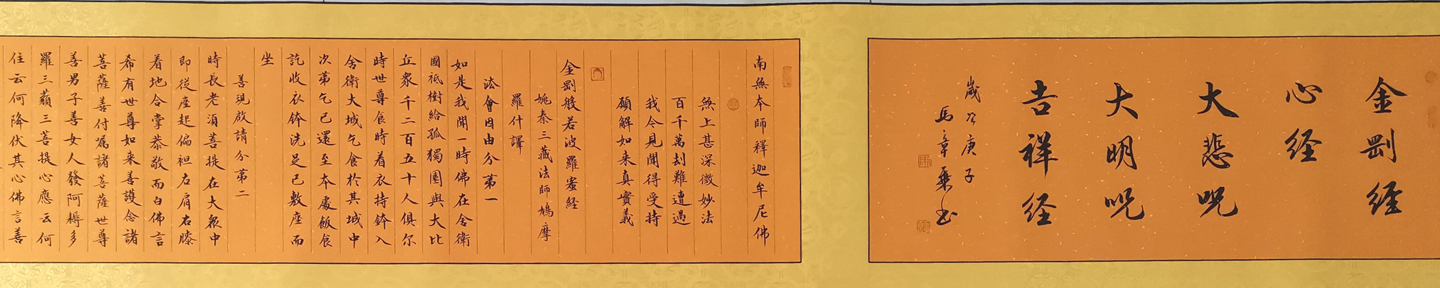 金剛经
心经
大悲呪
大明呪
吉祥经
歲次庚子
馬章乘书
南無本師釋迦牟尼佛
無上甚深微妙法
百千萬劫難遭遇
我今見聞得受持
願解如来真實義
金剛般若波羅蜜经
姚秦三藏法師鳩摩
羅什譯
法會因由分第一
如是我聞一時佛在舍衛
國祇樹給孤獨園與大比
丘眾千二百五十人俱尔
時世尊食時着衣持鉢入
舍衛大城乞食於其城中
次第乞已還至本處飯食
訖收衣鉢洗足已敷座而
坐
善現啟請分第二
時長老須菩提在大眾中
即從座起偏袒右肩右膝
着地合掌恭敬而白佛言
希有世尊如来善護念諸
菩薩善付属諸菩薩世尊
善男子善女人發阿耨多
羅三藐三菩提心應云何
住云何降伏其心佛言善